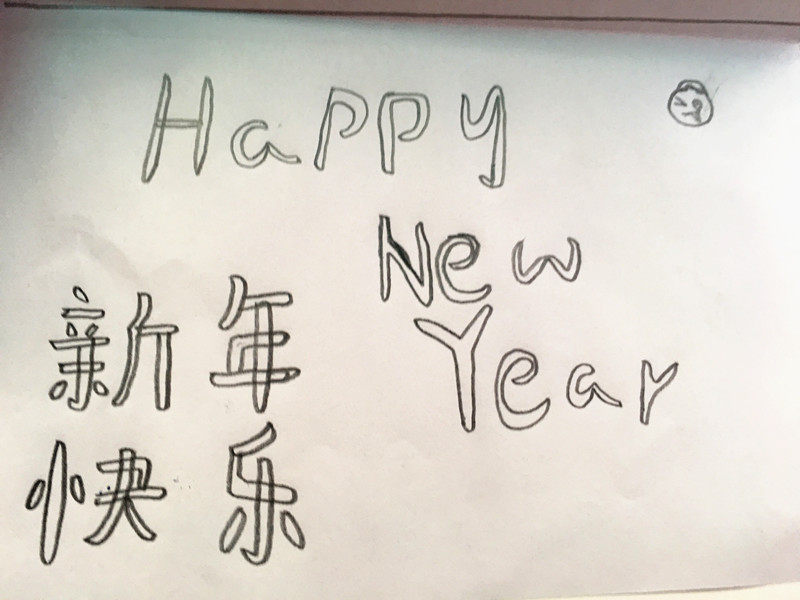 Happy
New
Year
新年
快乐